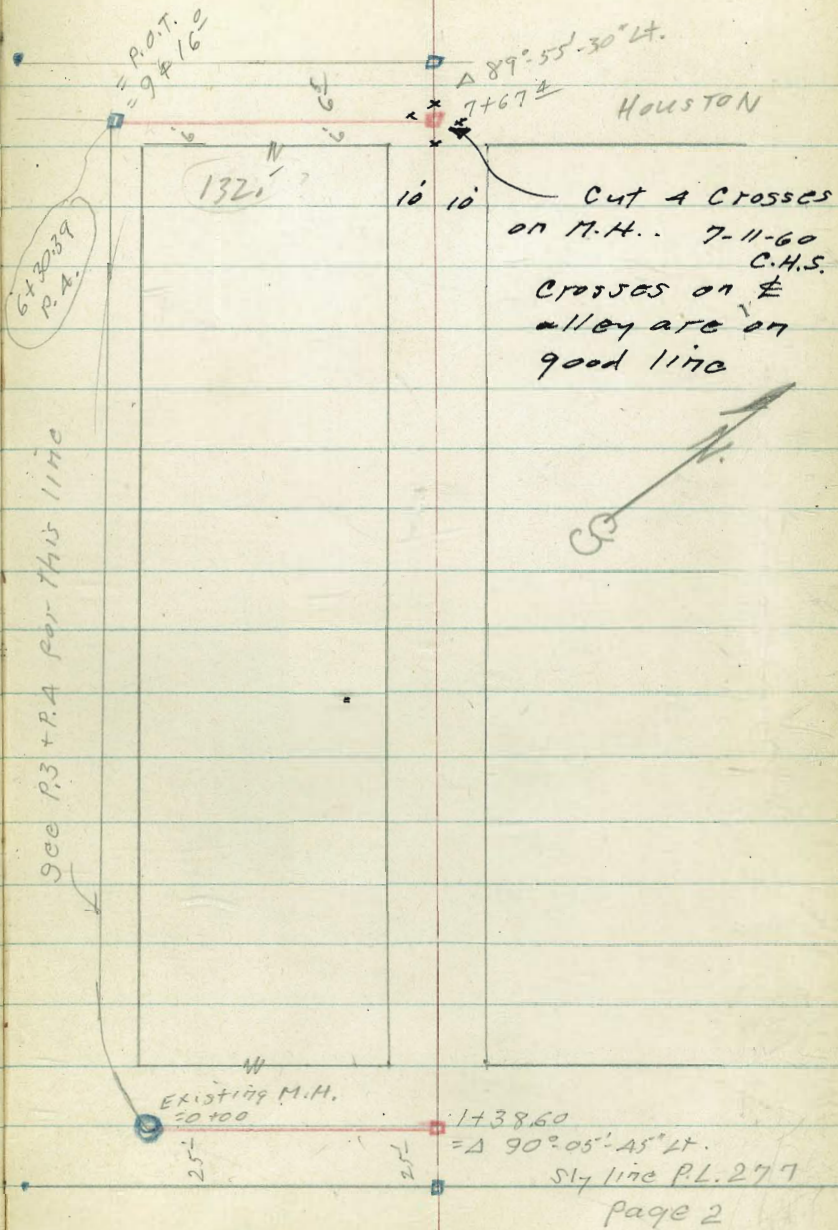 = P.O.T.
= 9+16 0
Δ 89°-55'-30" Lt.
7+67 4
HOUSTON
6
6
65
N
132.'
?
10' 10'
Cut 4 Crosses
on M.H.. 7-11-60
C.H.S.
Crosses on ℄
alley are on
good line
6+30.39
P.4.
N.
see P.3 + P.4 for this line
Existing M.H.
=0+00
25'
25'
1+38.60
=Δ 90°-05'-45" Lt.
Sly line P.L. 277
Page 2